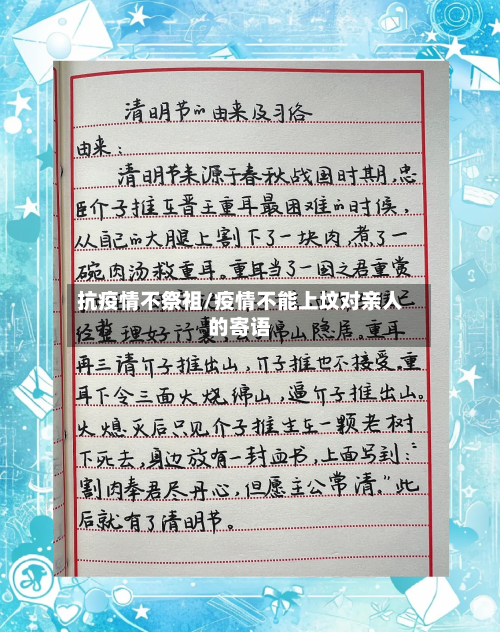 清明节的由来及习俗
由来：
清明节来源于春秋战国时期，忠
臣介子推在晋王重耳最困难的时候，
从自己的大腿上割下了一块肉，煮了一
碗肉汤救重耳。重耳当了一国之君重赏
抗疫情不祭祖/疫情不能上坟对亲人
的寄语
经整理好行囊，绵山隐居。重耳
再三请介子推出山，介子推也不接受。重
耳下令三面火烧绵山，逼介子推出山。
火熄灭后只见介子推坐在一颗老树
下死去，身边放有一封血书，上面写到：“
割肉奉君尽丹心，但愿主公常清。”此
后就有了清明节。